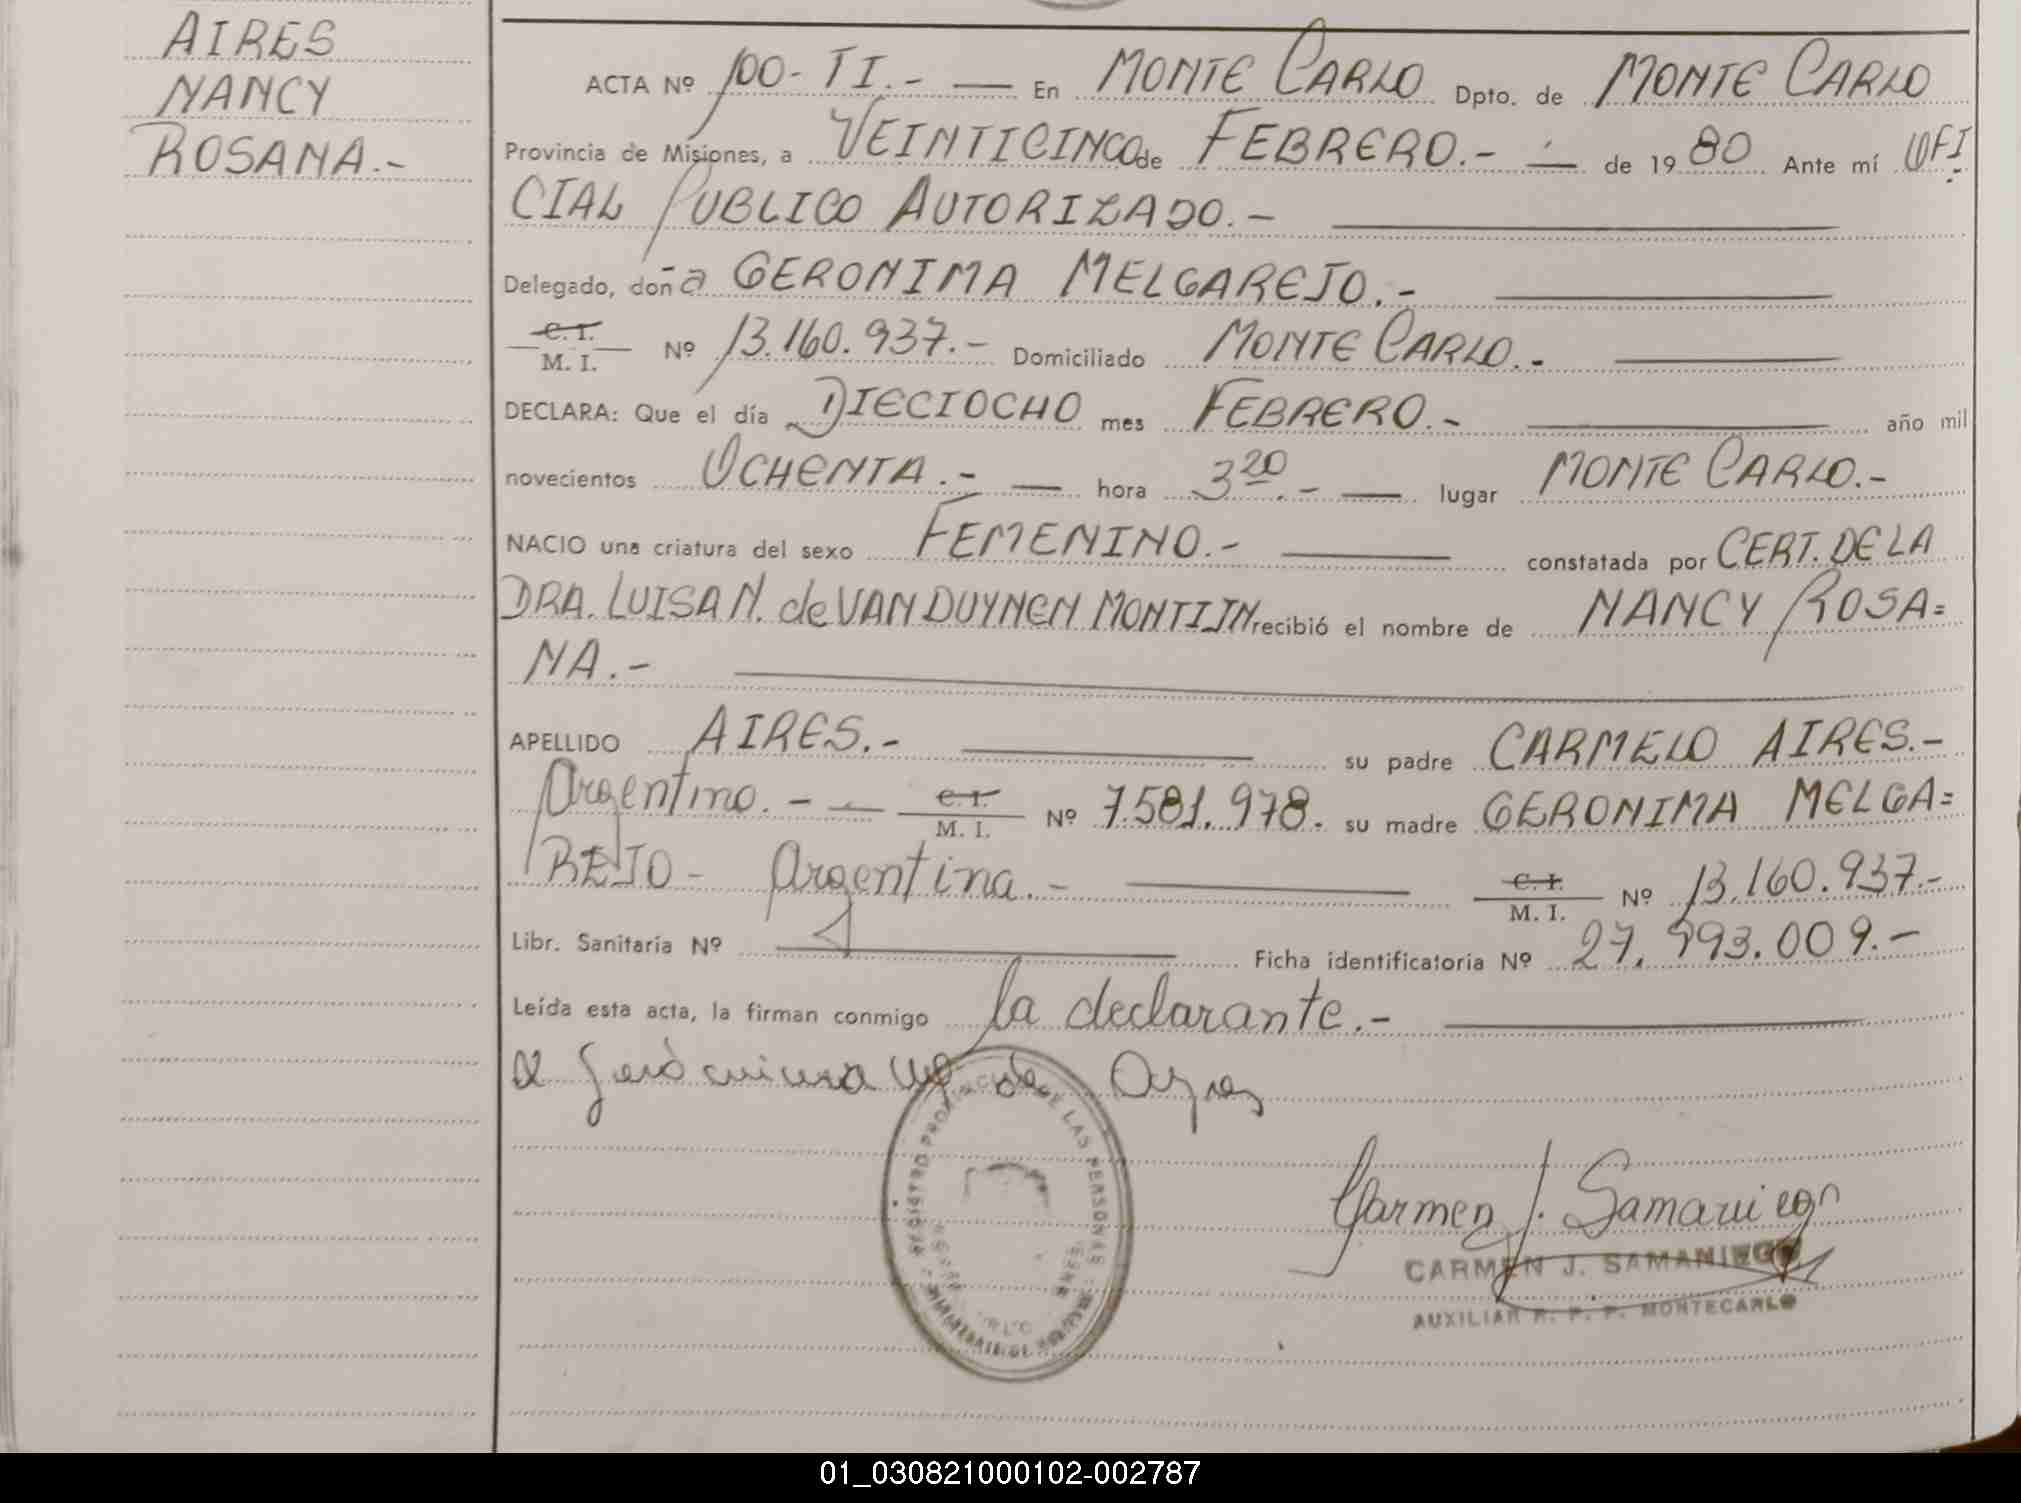 AIRES
NANCY
ROSANA.-
ACTA Nº 100- TI.- — En MONTE CARLO Dpto. de MONTE CARLO
Provincia de Misiones, a VEINTICINCO de FEBRERO.- — de 1980 Ante mí OFI-
CIAL PUBLICO AUTORIZADO.-
Delegado, doña GERONIMA MELGAREJO.-
C. I.
M. I. Nº 13.160.937.- Domiciliado MONTE CARLO.-
DECLARA: Que el día DIECIOCHO mes FEBRERO.- año mil
novecientos OCHENTA.- — hora 3 20.- — lugar MONTE CARLO.-
NACIO una criatura del sexo FEMENINO.- constatada por CERT. DE LA
DRA. LUISA N. de VAN DUYNEN MONTIJN recibió el nombre de NANCY ROSA=
NA.-
APELLIDO AIRES.- su padre CARMELO AIRES.-
Argentino.- — C. I. M. I. Nº 7.581.978. su madre GERONIMA MELGA=
REJO- Argentina.- C. I. M. I. Nº 13.160.937.-
Libr. Sanitaria Nº Ficha identificatoria Nº 27.993.009.-
Leída esta acta, la firman conmigo la declarante.-
Gerònima de Ayres
REGISTRO PROVINCIAL DE LAS PERSONAS
Carmen J. Samaniego
CARMEN J. SAMANIEGO
AUXILIAR R. P. P. MONTECARLO
01_030821000102-002787